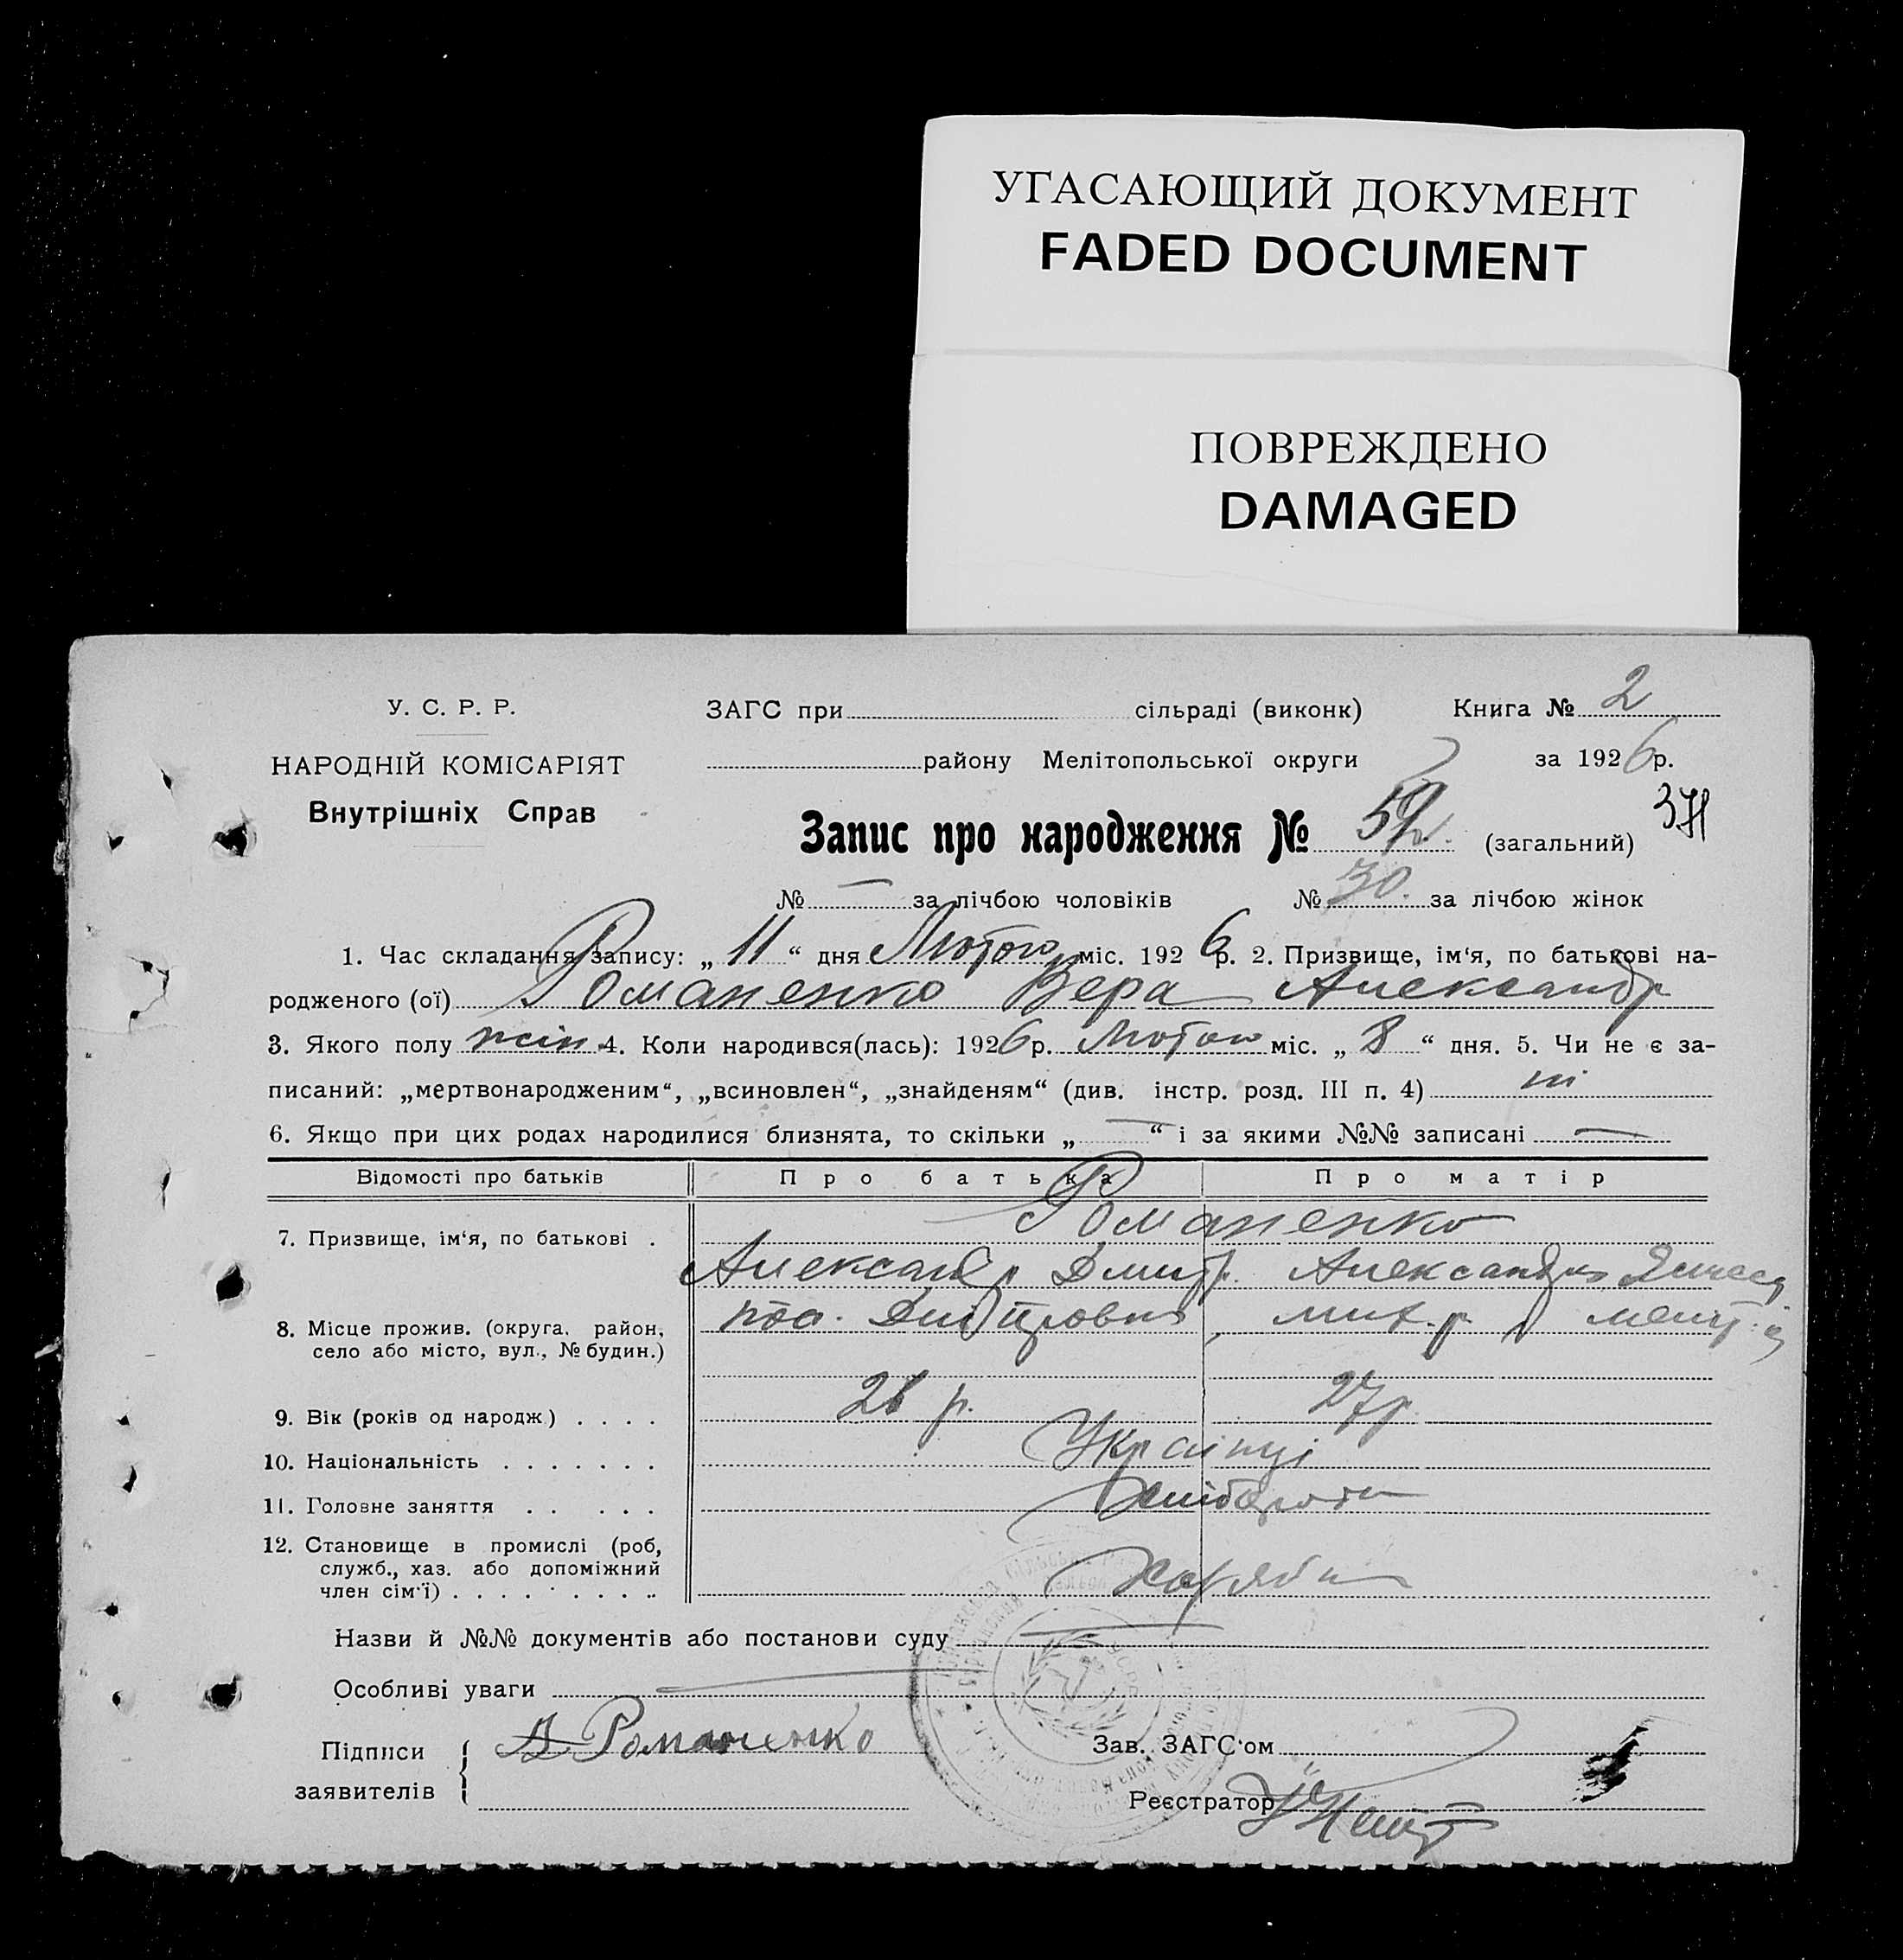 УГАСАЮЩИЙ ДОКУМЕНТ
FADED DOCUMENT
ПОВРЕЖДЕНО
DAMAGED
У. С. Р. Р.
НАРОДНІЙ КОМІСАРІЯТ
Внутрішніх Справ
ЗАГС при сільраді (виконк) Книга № 2
району Мелітопольської округи за 1926 р.
Запис про народження № (загальний)
№ — за лічбою чоловіків № 30. за лічбою жінок
1. Час складання запису: „ 11 “ дня Лютого міс. 1926 р. 2. Призвище, ім‘я, по батькові на-
родженого (ої) Романенко Вера Александр
3. Якого полу жін 4. Коли народився(лась): 1926 р. Лютого міс. „ 8 “ дня. 5. Чи не є за-
писаний: „мертвонародженим“, „всиновлен“, „знайденям“ (див. інстр. розд. III п. 4) ні
6. Якщо при цих родах народилися близнята, то скільки „ — “ і за якими №№ записані —
Відомості про батьків Про батька Про матір
7. Призвище, ім‘я, по батькові . Романенко
Александр Дмитр. Александра
8. Місце прожив. (округа, район,
село або місто, вул., № будин.)
9. Вік (років од народж) . . . . 28 р. 27 р.
10. Національність . . . . . . . Українці
11. Головне заняття . . . . . Хліборобн
12. Становище в промислі (роб,
служб., хаз. або допоміжний
член сім‘ї) . . . . . . . . .
Назви й №№ документів або постанови суду —
Особливі уваги —
Підписи
заявителів
А Романенко
Зав. ЗАГС‘ом
Реєстратор